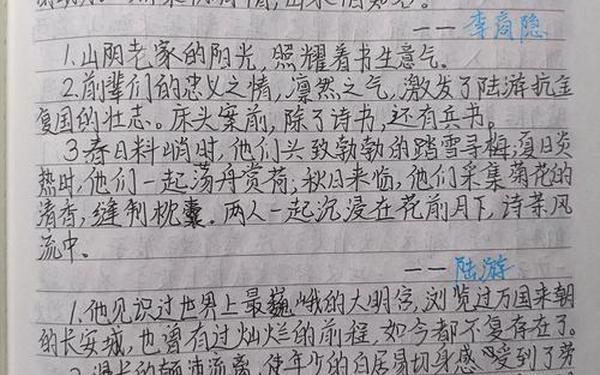 ——李商隐
1.山阴老家的阳光,照耀着书生意气。
2.前辈们的忠义之情,凛然之气,激发了陆游抗金
复国的壮志。床头案前,除了诗书,还有兵书。
3.春日料峭时,他们兴致勃勃的踏雪寻梅;夏日炎
热时,他们一起荡舟赏荷,秋日来临,他们采集菊花的
清香,缝制枕囊。两人一起沉浸在花前月下,诗茶风
流中。
——陆游
1.他见识过世界上最巍峨的大明宫,浏览过万国来朝
的长安城,也曾有过灿烂的前程,如今都不复存在了。
2.漫长的颠沛流离,使年少的白居易切身感受到了劳